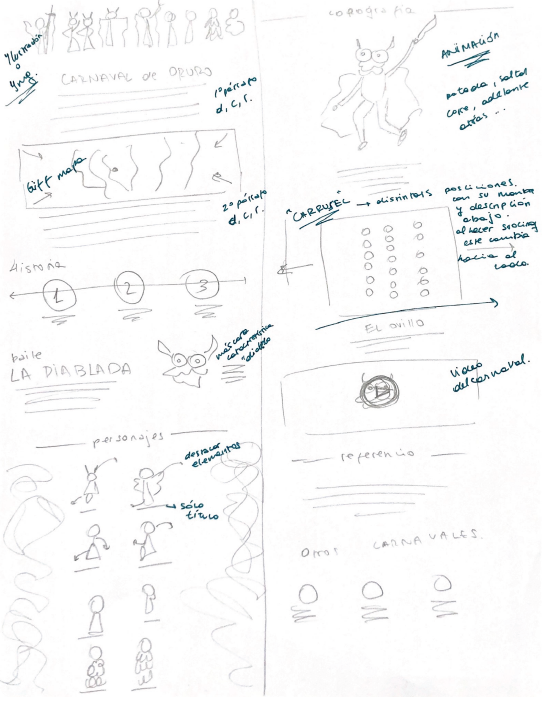 Ilustración
o
Img.
CARNAVAL de ORURO
1º párrafo
d, c, r.
GIFF mapa
2º párrafo
d, c, r.
Historia
1 2 3
baile
LA DIABLADA
máscara
característica
"diablo
personajes
destacar
elementos
sólo
título
coreografía
ANIMACIÓN
patada, salto
corre, adelante
atrás ...
"CARRUSEL" → distintas posiciones.
con su nombre
y descripción
abajo.
al hacer scroling
este cambia
hacia el
lado.
EL ovillo
video
del carnaval.
referencia
Otros CARNAVALES.